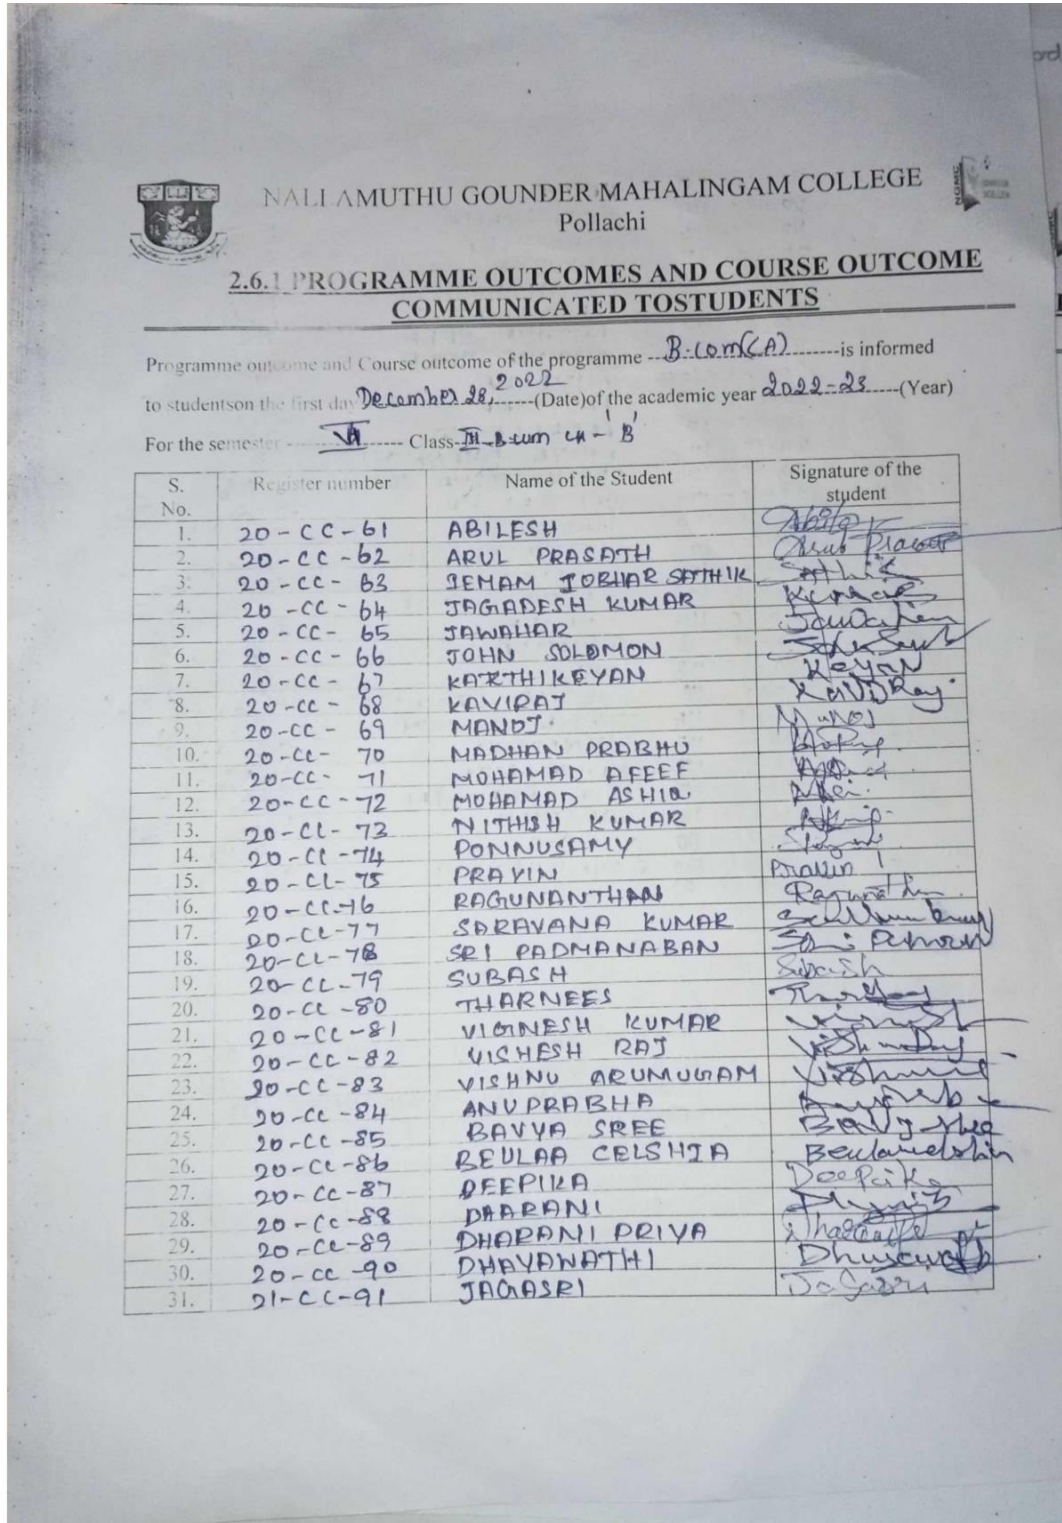 NALLAMUTHU GOUNDER MAHALINGAM COLLEGE
Pollachi
2.6.1 PROGRAMME OUTCOMES AND COURSE OUTCOME
COMMUNICATED TOSTUDENTS
Programme outcome and Course outcome of the programme ---B.com(CA)--------is informed
2022
to studentson the first day December 28,------(Date)of the academic year 2022-23-----(Year)
For the semester -------- VI ------ Class-III-B.com CA-'B'
S. No. Register number Name of the Student Signature of the student
1. 20-CC-61 ABILESH
2. 20-CC-62 ARUL PRASATH Arul Prasath
3. 20-CC-63 JEMAM JOBHAR SATHIK Sathik
4. 20-CC-64 JAGADESH KUMAR
5. 20-CC-65 JAWAHAR
6. 20-CC-66 JOHN SOLOMON
7. 20-CC-67 KARTHIKEYAN Keyan
8. 20-CC-68 KAVIRAJ KaviRaj
9. 20-CC-69 MANOJ. Manoj
10. 20-CC-70 MADHAN PRABHU
11. 20-CC-71 MOHAMAD AFEEF
12. 20-CC-72 MOHAMAD ASHIQ
13. 20-CC-73 NITHISH KUMAR
14. 20-CC-74 PONNUSAMY
15. 20-CC-75 PRAVIN Pravin
16. 20-CC-76 RAGUNANTHAN
17. 20-CC-77 SARAVANA KUMAR
18. 20-CC-78 SRI PADMANABAN
19. 20-CC-79 SUBASH Subash
20. 20-CC-80 THARNEES
21. 20-CC-81 VIGINESH KUMAR
22. 20-CC-82 VISHESH RAJ
23. 20-CC-83 VISHNU ARUMUGAM
24. 20-CC-84 ANUPRABHA
25. 20-CC-85 BAVYA SREE
26. 20-CC-86 BEULAA CELSHIA
27. 20-CC-87 DEEPIKA Deepika
28. 20-CC-88 DAARANI
29. 20-CC-89 DHARANI PRIYA
30. 20-CC-90 DHAYAWATHI
31. 21-CC-91 JAGASRI Jagasri